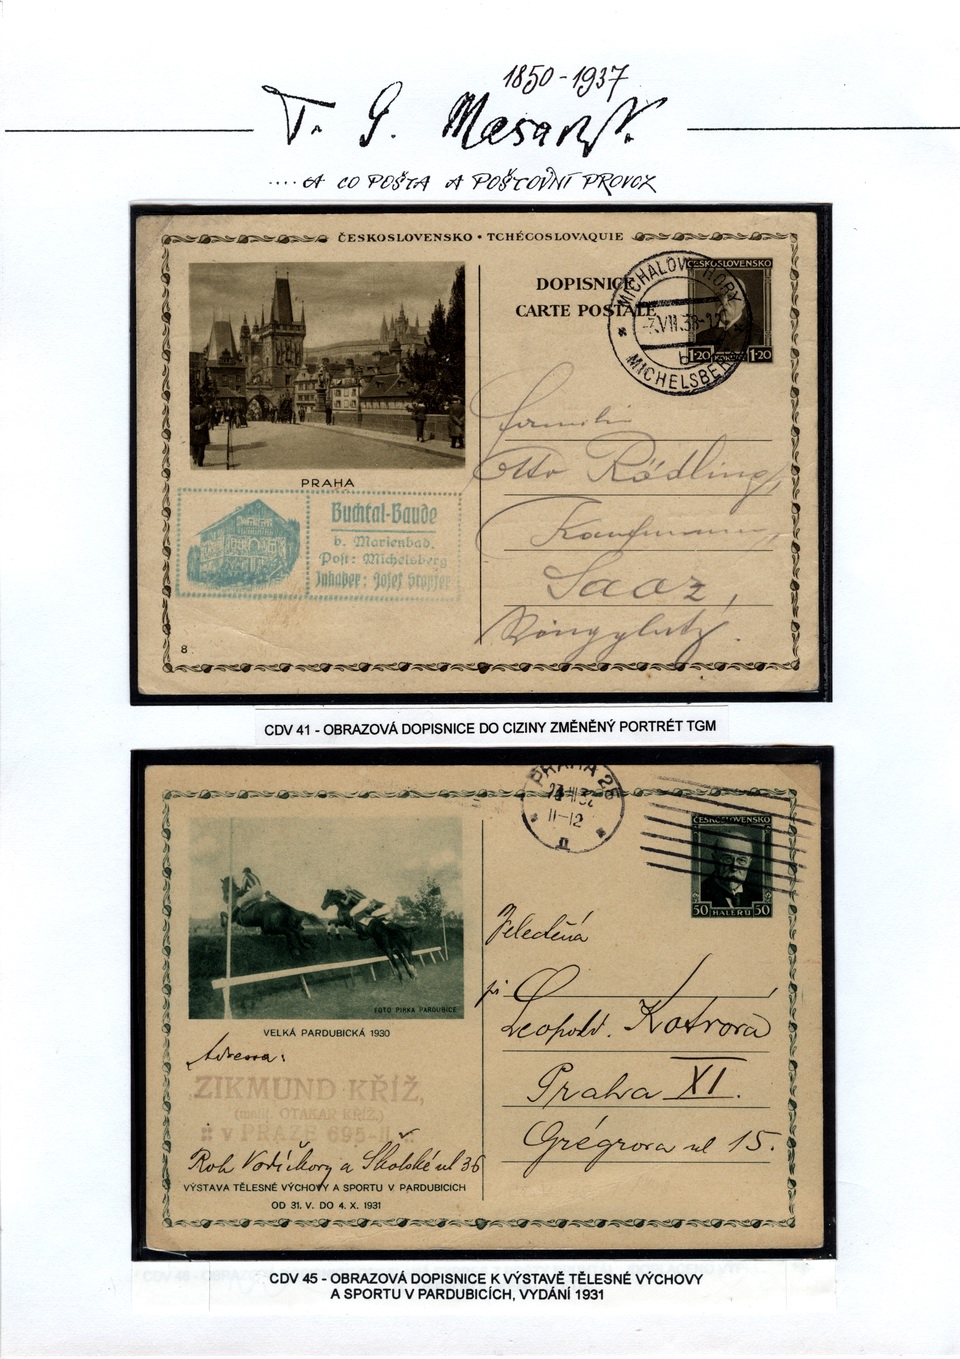 1850-1937
T. G. Masaryk
.... A CO POŠTA A POŠTOVNÍ PROVOZ
ČESKOSLOVENSKO • TCHÉCOSLOVAQUIE
DOPISNICE
CARTE POSTALE
ČESKOSLOVENSKO
1·20 1·20
MICHALOVY HORY
MICHELSBERG
PRAHA
Buchtal-Baude
b. Marienbad.
Post: Michelsberg
Inhaber: Josef Stopfer
Otto Rödling,
Kaufmann
Saaz,
8
CDV 41 - OBRAZOVÁ DOPISNICE DO CIZINY ZMĚNĚNÝ PORTRÉT TGM
PRAHA 25
11-12
ČESKOSLOVENSKO
50 HALÉŘŮ 50
FOTO PIRKA PARDUBICE
VELKÁ PARDUBICKÁ 1930
Adressa:
ZIKMUND KŘÍŽ,
(majit. OTAKAR KŘÍŽ,)
v PRAZE 695-II
Roh Vodičkovy a Školské ul 36
VÝSTAVA TĚLESNÉ VÝCHOVY A SPORTU V PARDUBICÍCH
OD 31. V. DO 4. X. 1931
Leopold. Kotrová
Praha XI.
Grégrova ul 15.
CDV 45 - OBRAZOVÁ DOPISNICE K VÝSTAVĚ TĚLESNÉ VÝCHOVY
A SPORTU V PARDUBICÍCH, VYDÁNÍ 1931